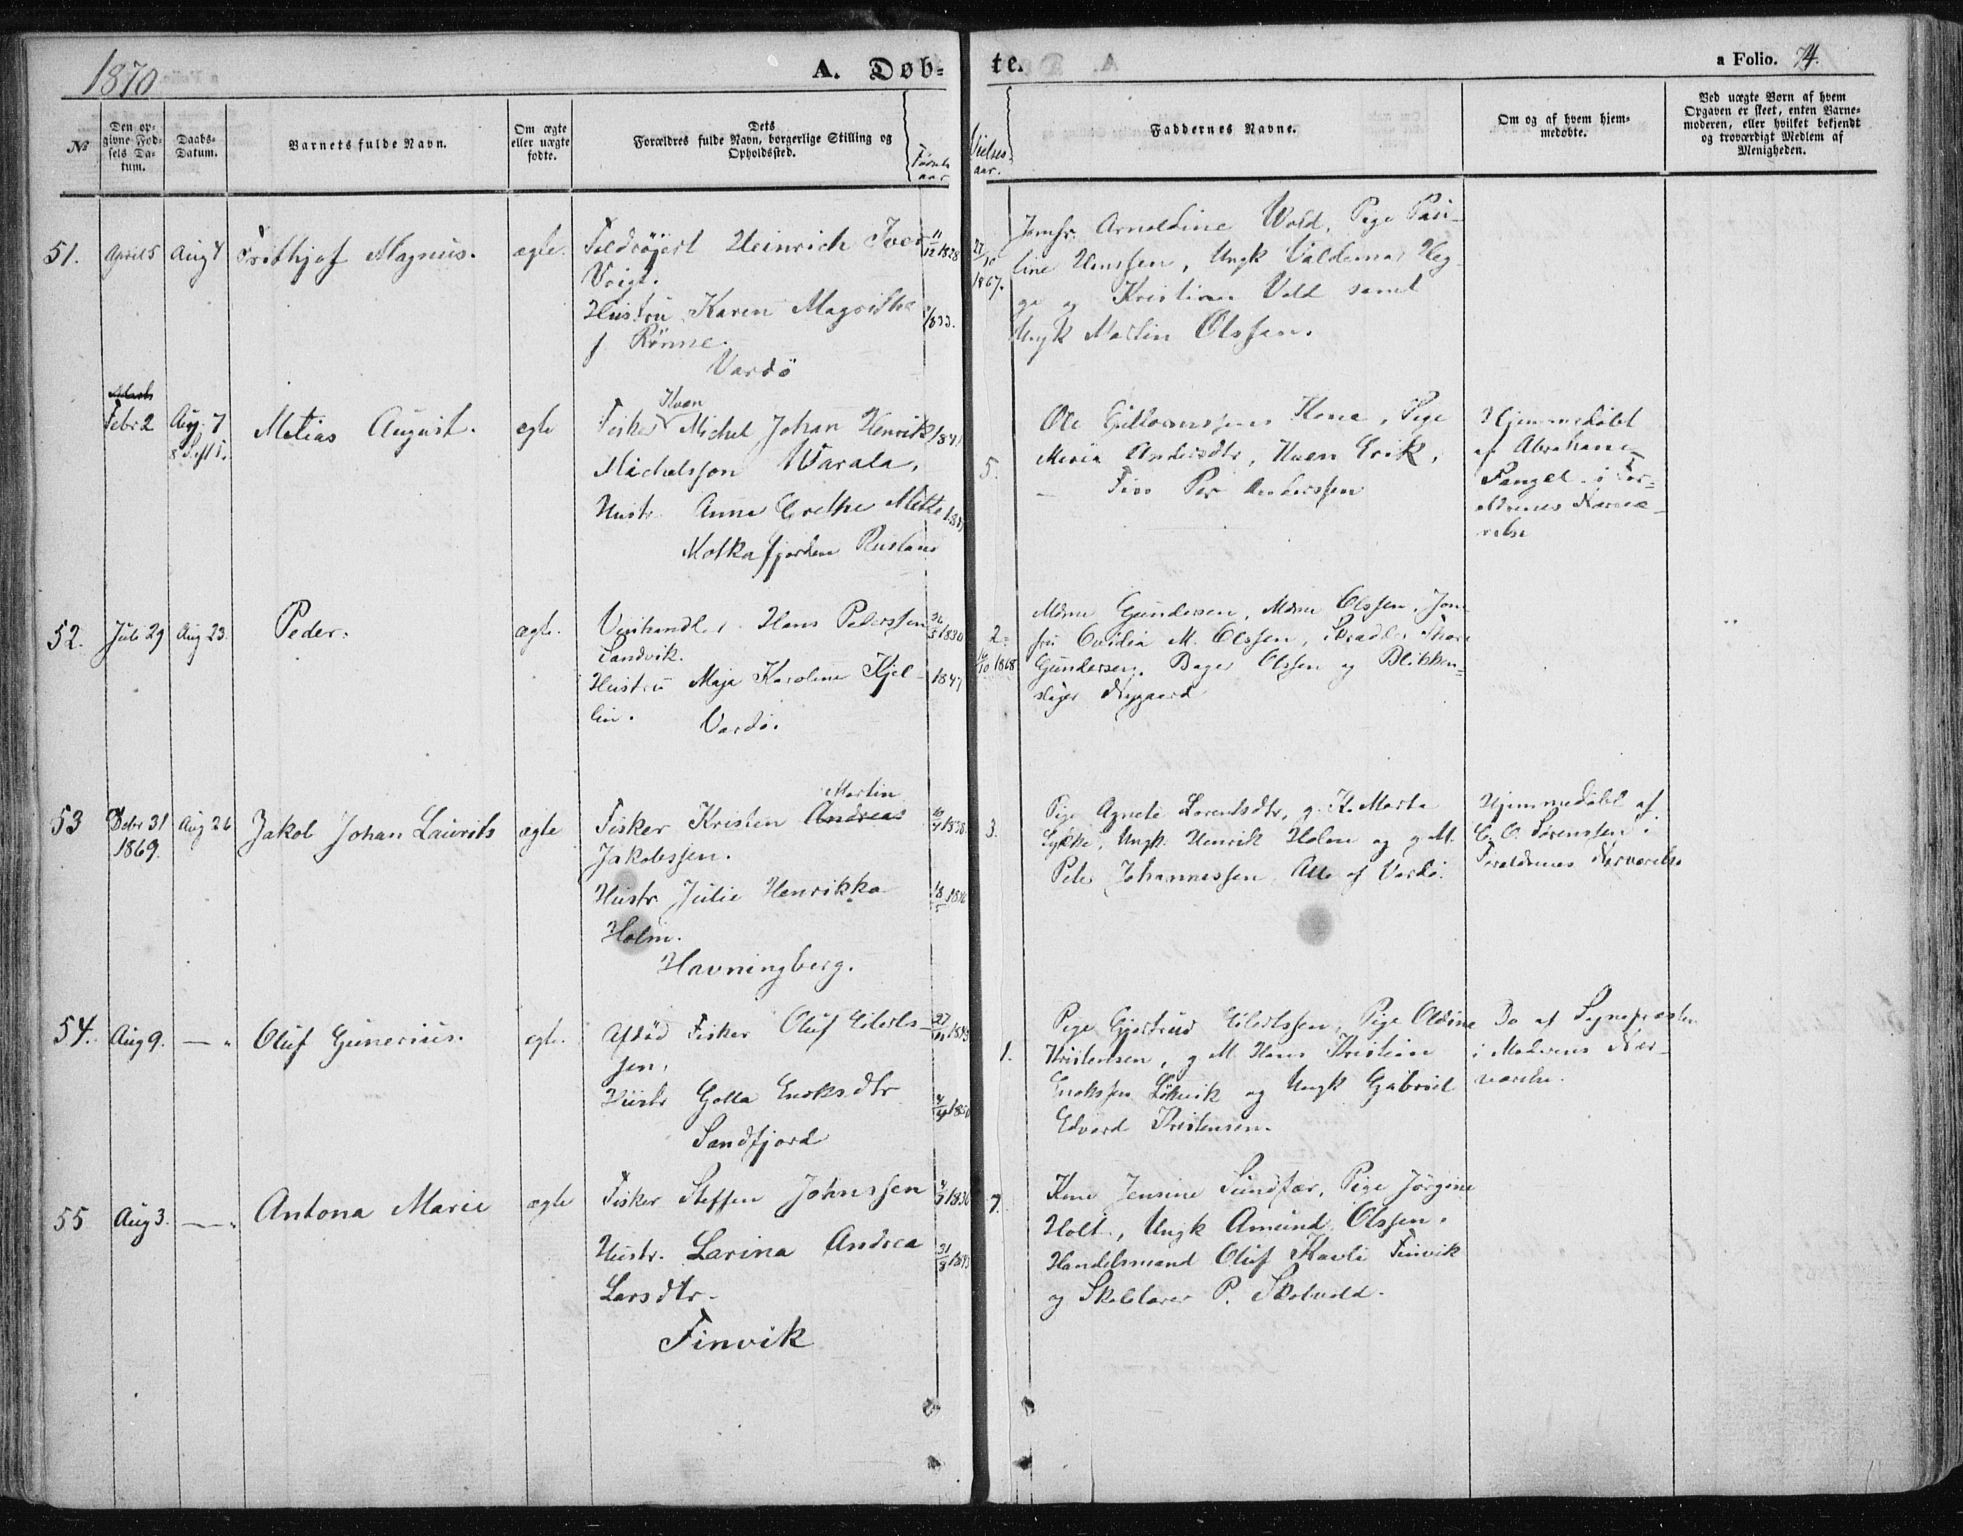 1870
A. Døb-
te.
a Folio. 74.
№
Den op-
givne Fød-
sels Da-
tum.
Daabs-
Datum.
Barnets fulde Navn.
Om ægte
eller uægte
fødte.
Dets
Forældres fulde Navn, borgerlige Stilling og
Opholdssted.
Fødsels
aar
Vielses-
aar.
Faddernes Navne.
Om og af hvem hjem-
medøbte.
Ved uægte Born af hvem
Opgaven er skeet, enten Barne-
moderen, eller hvilket bekjendt
og troværdigt Medlem af
Menigheden.
51.
April 5
Aug 7
Frithjof Magnus.
ægte.
Heinrich Iver
Voigt.
Hustru Karen Magrethe
f Rønne.
Vardö
11/12 1828
1833.
1867.
Jomfr. Arnoldine Wold, Pige Pau-
line Hanssen, Ungk Valdemar Heg-
ge og Kristian Vold samt
Ungk Martin Olssen.
Marts
Febr 2
Aug. 7
Metias August.
ægte
Kven
Fisker Michel Johan Henrik
Michelsson Warala,
Hustr. Anna Grethe
Motkafjorden Rusland
5.
Kone, Pige
Maria Andersdtr, Kven Erik,
Per Anderssen
Hjemmedøbt
af Abraham
i For-
ældrenes Nærvæ-
relse
52.
Juli 29
Aug 23.
Peder.
ægte.
Vinhandler Hans Pederssen
Sandvik.
Hustru Maja Karoline Kjel-
lin.
Vardö.
1830
1847
2.
1868
Mdme Gundersen, Mdme Olssen, Jom-
fru M. Olssen,
Gundersen, Bager Olssen og Blikken-
slager Nygaard
53
Debr 31
1869.
Aug 26
Jakob Johan Laurits
ægte
Martin
Fisker Kristen Andreas
Jakobssen.
Hustr Julie Henrikka
Holm.
Havningberg.
3.
Pige Agnete Lorentsdtr, g. K. Marta
Lykke, Ungk. Henrik Holm og g M.
Peter Johannessen Alle af Vardö.
Hjemmedøbt af
C. O. Sørenssen i
Forældrenes Nærværelse
54.
Aug 9.
— "
Oluf Gunerius.
ægte.
Afdød Fisker Oluf Eilerts-
sen.
Hustr Golla Enoksdtr
Sandfjord
1.
Pige Gjertrud Eilertssen, Pige Oldine
Kristensen, g M. Hans Kristian
Enokssen Løkvik og Ungk Gabriel
Edvard Kristensen.
Do af Sognepresten
i Moderens Nær-
værelse.
55
Aug 3.
— "
Antona Marie
ægte
Fisker Steffen Johnssen
Hustr. Larina Andrea
Larsdtr.
Finvik
7.
Kone Jensine Sundfær, Pige Jørgine
Holt, Ungk Amund Olssen,
Handelsmand Oluf Kavli Finvik
og Skolelærer P. Skolvold.